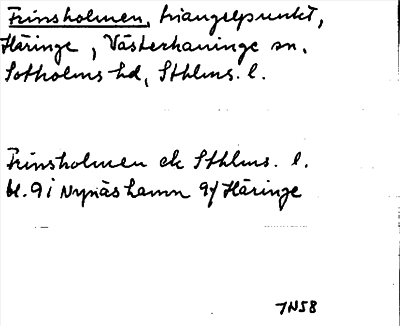 Frinsholmen, triangelpunkt,
Häringe, Västerhaninge sn.
Sotholms hd, Sthlms. l.
Frinsholmen ek Sthlms. l.
bl. 9 i Nynäshamn 9f Häringe
JN58